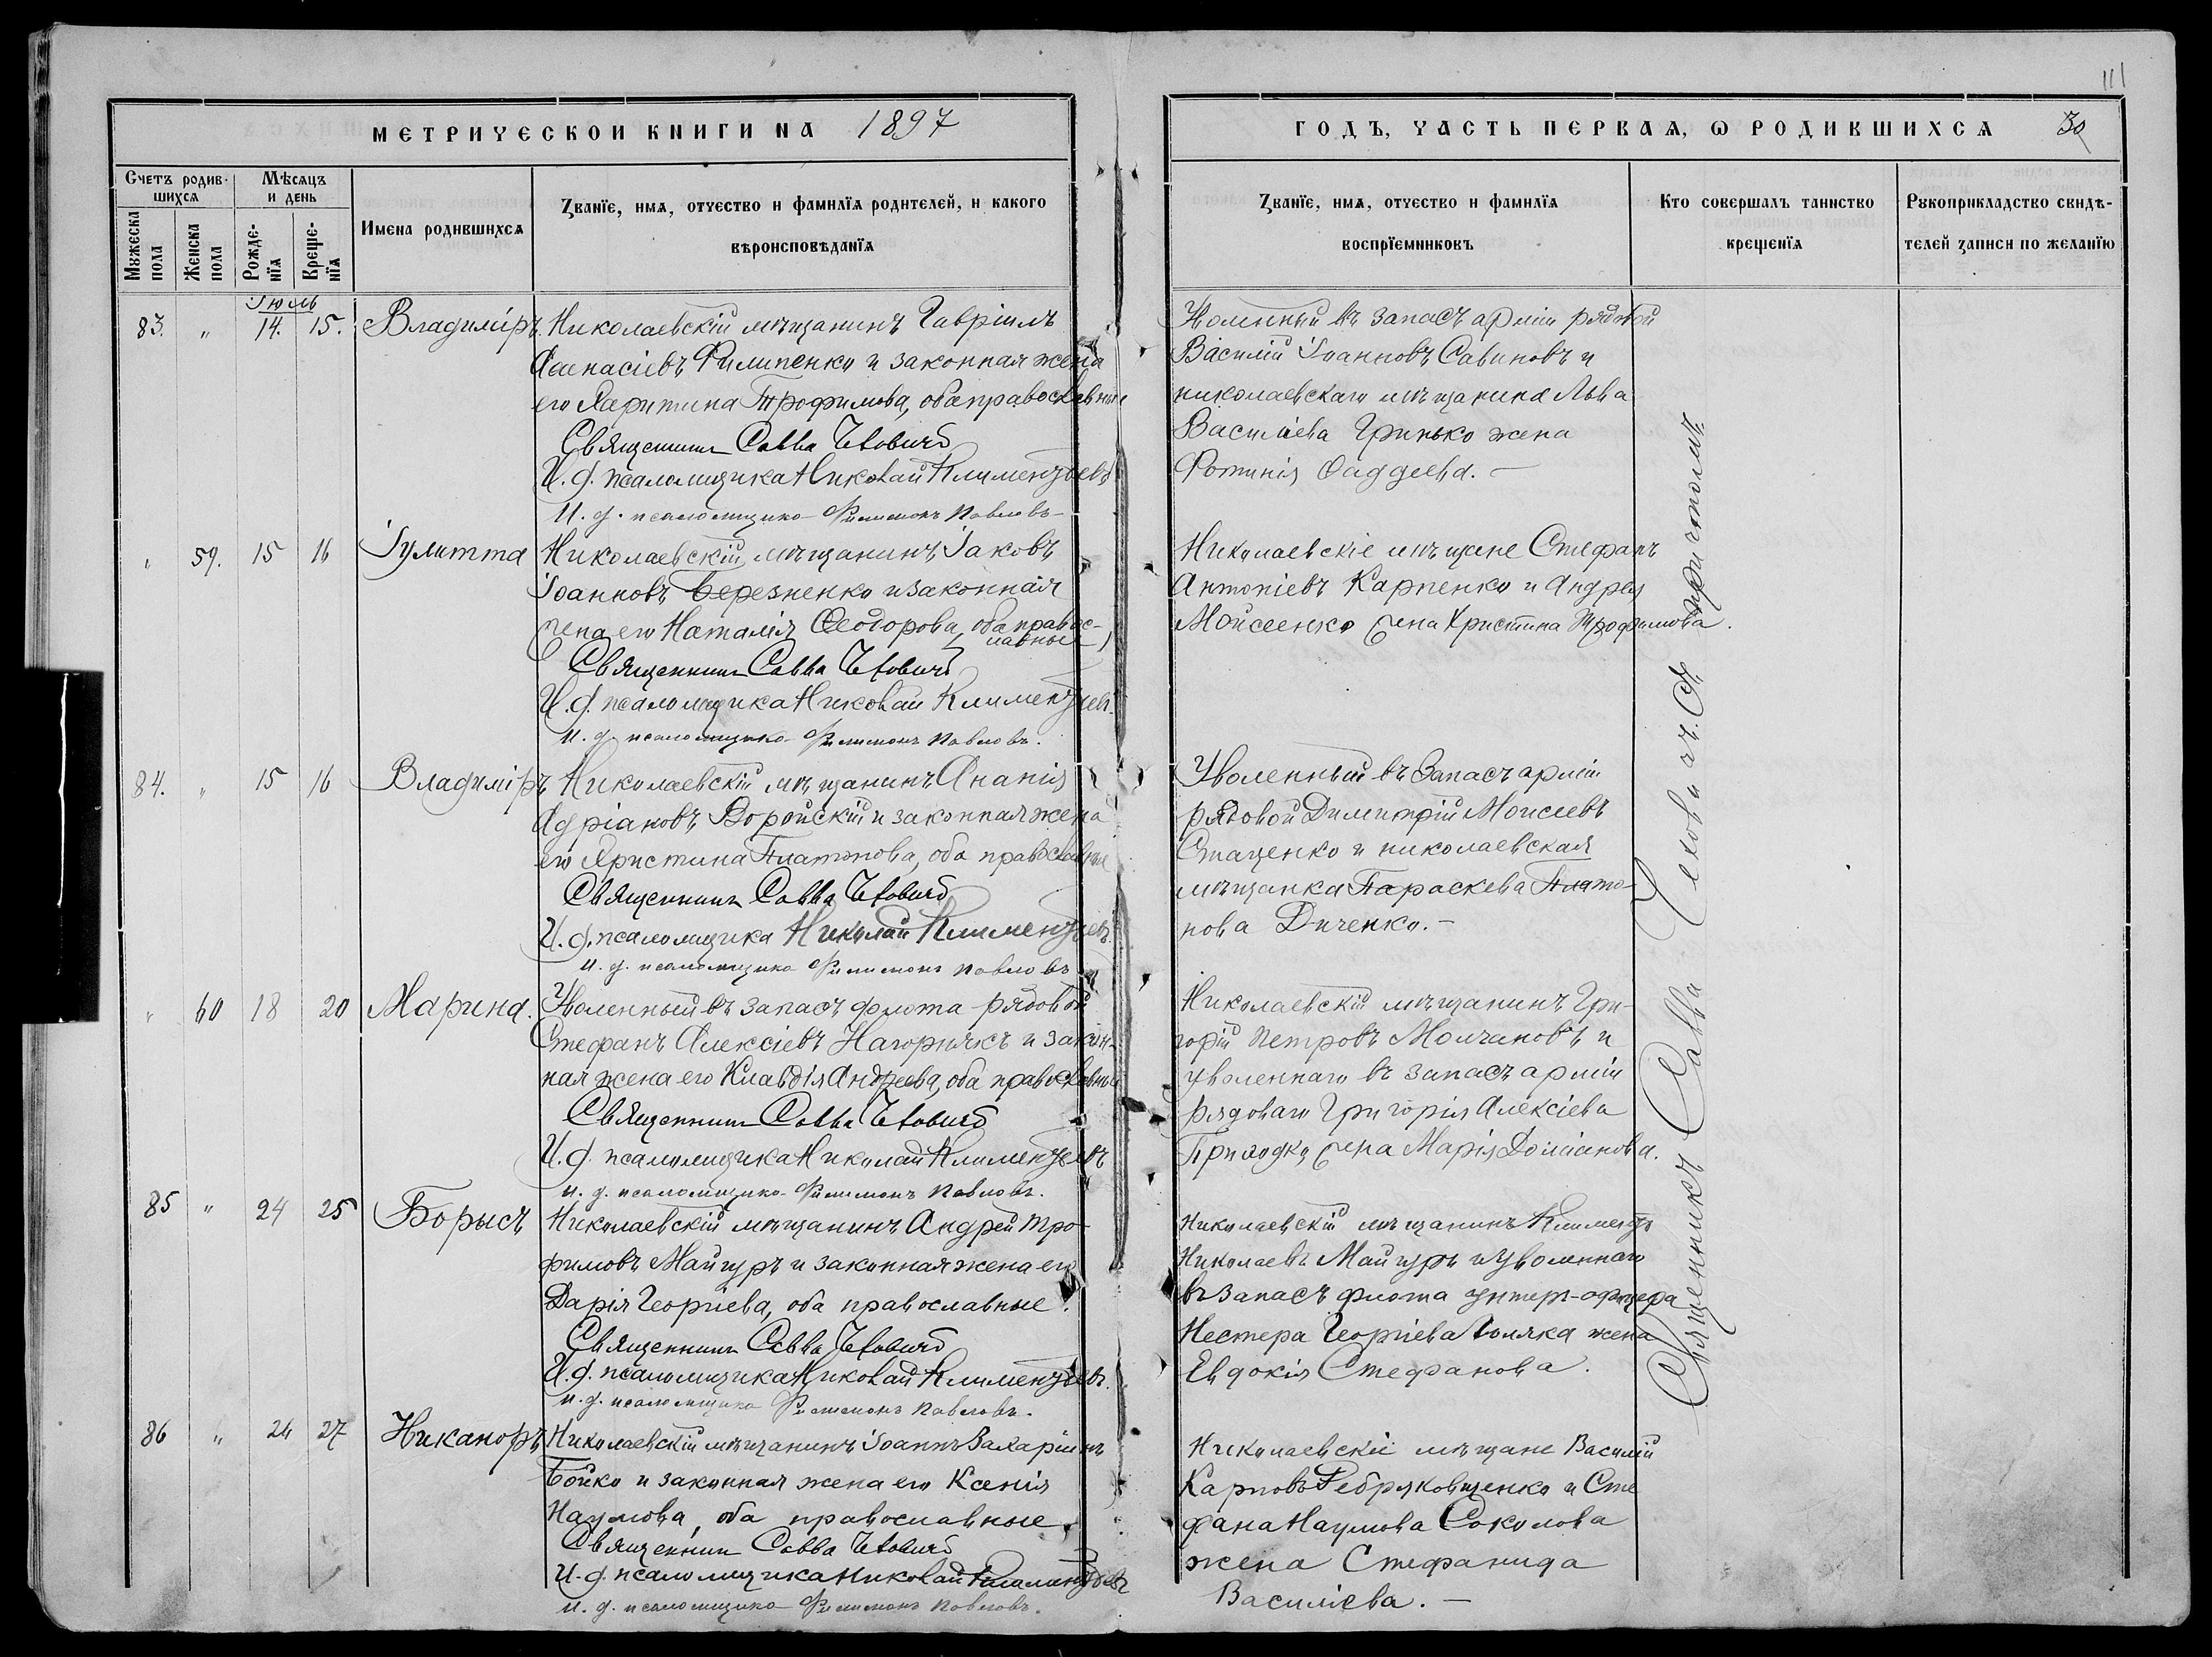 111
МЕТРИЧЕСКОЙ КНИГИ НА 1897
ГОДЪ, ЧАСТЬ ПЕРВАЯ, Ѡ РОДИВШИХСЯ 30
Счетъ родив-
шихся
Мѣсяцъ
и день
Мужеска
пола
Женска
пола
Рожде-
нїя
Креще-
нїя
Имена родившихся
Званїе, имя, отчество и фамилїя родителей, и какого
вѣроисповѣданїя
Званїе, имя, отчество и фамилїя
воспрїемниковъ
Кто совершалъ таинство
крещенїя
Рукоприкладство свидѣ-
телей записи по желанїю
Іюль
83. " 14. 15. Владиміръ. Николаевскій мѣщанинъ Гавріилъ
Аѳанасіевъ Филипенко и законная жена
его Харитина Трофимова, оба православные
Священникъ Савва Чеховичъ
И. д. псаломщика Николай Климентьевъ
И. д. псаломщика Филимонъ Павловъ
Уволенный въ запасъ арміи рядовой
Василій Іоанновъ Савиновъ и
николаевскаго мѣщанина Льва
Василіева Гринько жена
Фотинія Ѳаддеева. —
" 59. 15 16 Іулитта Николаевскій мѣщанинъ Іаковъ
Іоанновъ Березненко и законная
жена его Наталія Ѳеодорова, оба правос-
лавные
Священникъ Савва Чеховичъ
И. д. псаломщика Николай Климентьевъ
И. д. псаломщика Филимонъ Павловъ.
Николаевскіе мѣщане Стефанъ
Антоніевъ Карпенко и Андрея
Мойсеенко жена Христина Трофимова.
84. " 15 16 Владиміръ Николаевскій мѣщанинъ Ананія
Адріановъ Воройскій и законная жена
его Христина Платонова, оба православные
Священникъ Савва Чеховичъ
И. д. псаломщика Николай Климентьевъ
И. д. псаломщика Филимонъ Павловъ
Уволенный въ запасъ арміи
рядовой Димитрій Моисеевъ
Стаценко и николаевская
мѣщанка Параскева Плато-
нова Диченко. —
" 60 18 20 Марина. Уволенный въ запасъ флота рядовой
Стефанъ Алексіевъ Нагорнякъ и закон-
ная жена его Клавдія Андреева, оба православные
Священникъ Савва Чеховичъ
И. д. псаломщика Николай Климентьевъ
И. д. псаломщика Филимонъ Павловъ.
Николаевскій мѣщанинъ Гри-
горій Петровъ Молчановъ и
уволеннаго въ запасъ арміи
рядоваго Григорія Алексіева
Приходко жена Марія Доміанова.
85 " 24 25 Борысъ Николаевскій мѣщанинъ Андрей Тро-
фимовъ Майгуръ и законная жена его
Дарія Георгіева, оба православные.
Священникъ Савва Чеховичъ
И. д. псаломщика Николай Климентьевъ.
И. д. псаломщика Филимонъ Павловъ.
Николаевскій мѣщанинъ Климентъ
Николаевъ Майгуръ и уволеннаго
въ запасъ флота унтеръ-офицера
Нестера Георгіева жена
Евдокія Стефанова.
86 " 26 27 Никаноръ Николаевскій мѣщанинъ Іоаннъ Захаріинъ
Бойко и законная жена его Ксенія
Наумова, оба православные.
Священникъ Савва Чеховичъ
И. д. псаломщика Николай Климентьевъ
И. д. псаломщика Филимонъ Павловъ.
Николаевскіе мѣщане Василій
Карповъ и Сте
фана Наумова Соколова
жена Стефанида
Василіева. —
Священникъ Савва Чеховичъ. Съ причтомъ.